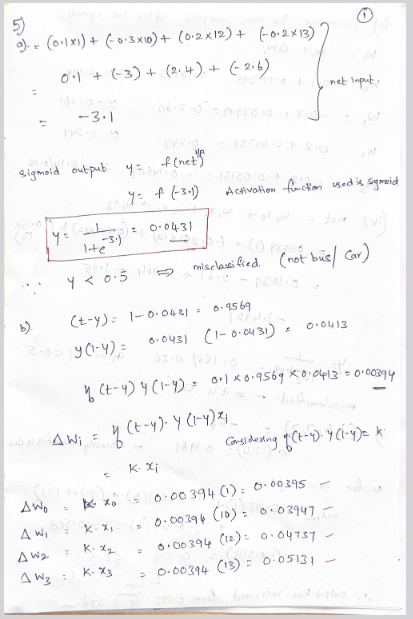 1
5)
a). = (0.1x1) + (-0.3x10) + (0.2x12) + (-0.2x13)
= 0.1 + (-3) + (2.4) + (-2.6) net input.
= -3.1
sigmoid output y = f(net)
y = f(-3.1) Activation function used is sigmoid
y = 1/(1+e^-(-3.1)) = 0.0431
∴ y < 0.5 ⇒ misclassified. (not bus/ car)
b). (t-y) = 1-0.0431 = 0.9569
y(1-y) = 0.0431 (1-0.0431) = 0.0413
η (t-y) y(1-y) = 0.1 x 0.9569 x 0.0413 = 0.00394
ΔWi = η (t-y). y(1-y)xi Considering η(t-y). y(1-y) = K
= K. xi
ΔW0 = K. x0 = 0.00394 (1) = 0.00395 –
ΔW1 = K. x1 = 0.00394 (10) = 0.03947 –
ΔW2 = K. x2 = 0.00394 (12) = 0.04737 –
ΔW3 = K. x3 = 0.00394 (13) = 0.05131 –